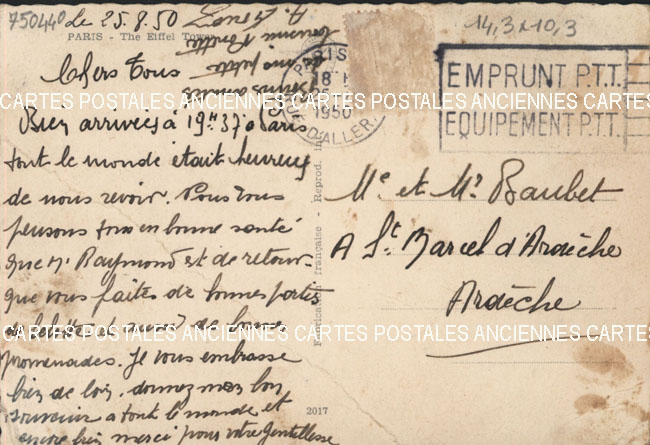 750440
le 25.8.50
14,3 x 10,3
PARIS - The Eiffel Tower
Chers tous
Bien arrivés à 19h37 à Paris
tout le monde était heureux
de nous revoir. Nous vous
pensons tous en bonne santé
que Mr Raymond est de retour
que vous faites de bonnes parties
de
promenades. Je vous embrasse
bien de loin. donnez mon bon
souvenir a tout le monde et
encore bien merci pour votre gentillesse
PARIS
18 H
25
1950
D'ALLER.
EMPRUNT P.T.T.
EQUIPEMENT P.T.T.
Me et Mr Baubet
A St Marcel d'Ardèche
Ardèche
Fabrication française - Reprod. int
2017
CARTES POSTALES ANCIENNES CARTES POSTALES ANCIENNES CARTES
CARTES POSTALES ANCIENNES CARTES POSTALES ANCIENNES CARTES